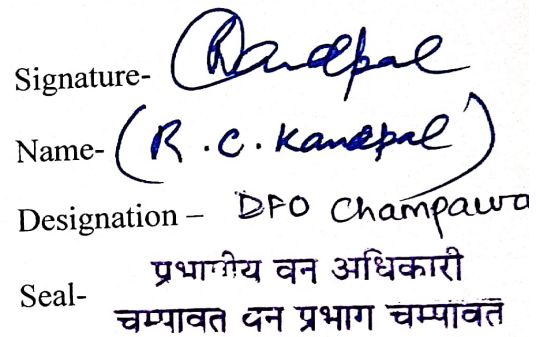 Signature- Kandpal
Name- (R.C. Kandpal)
Designation – DFO Champawa
Seal- प्रभागीय वन अधिकारी
चम्पावत वन प्रभाग चम्पावत